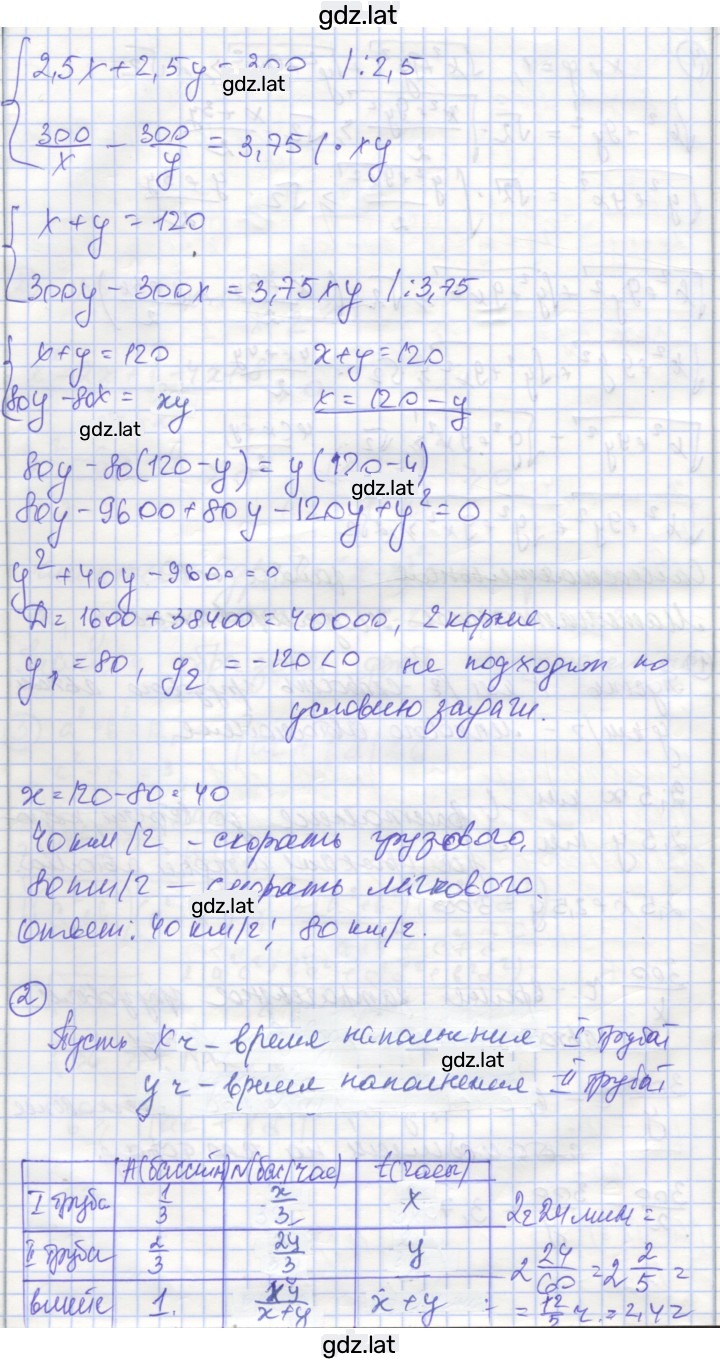 gdz.lat
2,5x + 2,5y = 300 /:2,5
gdz.lat
300/x - 300/y = 3,75 /· xy
x + y = 120
300y - 300x = 3,75xy /:3,75
x + y = 120 x + y = 120
80y - 80x = xy x = 120 - y
gdz.lat
80y - 80(120 - y) = y(120 - y)
gdz.lat
80y - 9600 + 80y - 120y + y² = 0
y² + 40y - 9600 = 0
D = 1600 + 38400 = 40000, 2 корня.
y₁ = 80, y₂ = -120 < 0 не подходит по
условию задачи.
x = 120 - 80 = 40
40 км/г - скорать грузового,
80 км/г - скорать легкового.
gdz.lat
Ответ: 40 км/г; 80 км/г.
2
Пусть x ч - время наполнения I трубы
gdz.lat
y ч - время наполнения II трубы
A(бассейн) N(бас/час) t(часы)
I труба 1/3 x/3 x 2ч 24 мин =
II труба 2/3 2y/3 y 2 24/60 = 2 2/5 =
вместе 1. xy/x+y x + y = 12/5 ч. = 2,4 ч
gdz.lat